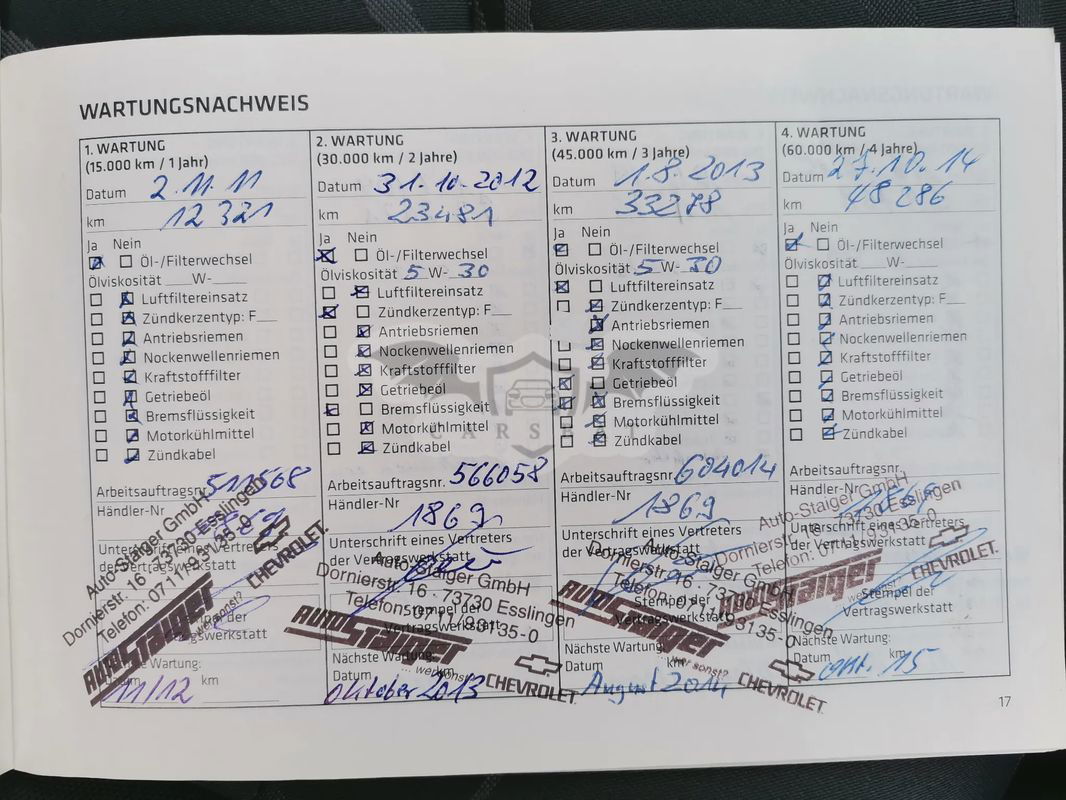 WARTUNGSNACHWEIS
1. WARTUNG
(15.000 km / 1 Jahr)
Datum 2.11.11
km 12 321
Ja Nein
Öl-/Filterwechsel
Ölviskosität ___W-___
Luftfiltereinsatz
Zündkerzentyp: F__
Antriebsriemen
Nockenwellenriemen
Kraftstofffilter
Getriebeöl
Bremsflüssigkeit
Motorkühlmittel
Zündkabel
Arbeitsauftragsnr.
Händler-Nr
Unterschrift eines Vertreters
der Vertragswerkstatt
Auto-Staiger GmbH
Dornierstr. 16 - 73730 Esslingen
Telefon: 0711/93135-0
AUTOStaiger
wer sonst?
CHEVROLET
Nächste Wartung:
Datum km
11/12
2. WARTUNG
(30.000 km / 2 Jahre)
Datum 31.10.2012
km 23481
Ja Nein
Öl-/Filterwechsel
Ölviskosität 5 W- 30
Luftfiltereinsatz
Zündkerzentyp: F__
Antriebsriemen
Nockenwellenriemen
Kraftstofffilter
Getriebeöl
Bremsflüssigkeit
Motorkühlmittel
Zündkabel
Arbeitsauftragsnr. 566058
Händler-Nr
1869
Unterschrift eines Vertreters
der Vertragswerkstatt
Auto-Staiger GmbH
Dornierstr. 16 - 73730 Esslingen
Telefon: 0711/93135-0
Stempel der
Vertragswerkstatt
AUTOStaiger
... wer sonst?
CHEVROLET
Nächste Wartung:
Datum km
Oktober 2013
3. WARTUNG
(45.000 km / 3 Jahre)
Datum 1.8.2013
km 33278
Ja Nein
Öl-/Filterwechsel
Ölviskosität 5 W- 30
Luftfiltereinsatz
Zündkerzentyp: F__
Antriebsriemen
Nockenwellenriemen
Kraftstofffilter
Getriebeöl
Bremsflüssigkeit
Motorkühlmittel
Zündkabel
Arbeitsauftragsnr. 604014
Händler-Nr
1869
Unterschrift eines Vertreters
der Vertragswerkstatt
Auto-Staiger GmbH
Dornierstr. 16 - 73730 Esslingen
Telefon: 0711/93135-0
Stempel der
Vertragswerkstatt
AUTOStaiger
wer sonst?
CHEVROLET
Nächste Wartung:
Datum km
August 2014
4. WARTUNG
(60.000 km / 4 Jahre)
Datum 27.10.14
km 48 286
Ja Nein
Öl-/Filterwechsel
Ölviskosität ___W-___
Luftfiltereinsatz
Zündkerzentyp: F__
Antriebsriemen
Nockenwellenriemen
Kraftstofffilter
Getriebeöl
Bremsflüssigkeit
Motorkühlmittel
Zündkabel
Arbeitsauftragsnr.
Händler-Nr
Unterschrift eines Vertreters
der Vertragswerkstatt
Auto-Staiger GmbH
Dornierstr. 16 - 73730 Esslingen
Telefon: 0711/93135-0
AUTOStaiger
wer sonst?
CHEVROLET
Stempel der
Vertragswerkstatt
Nächste Wartung:
Datum km
Okt. 15
17